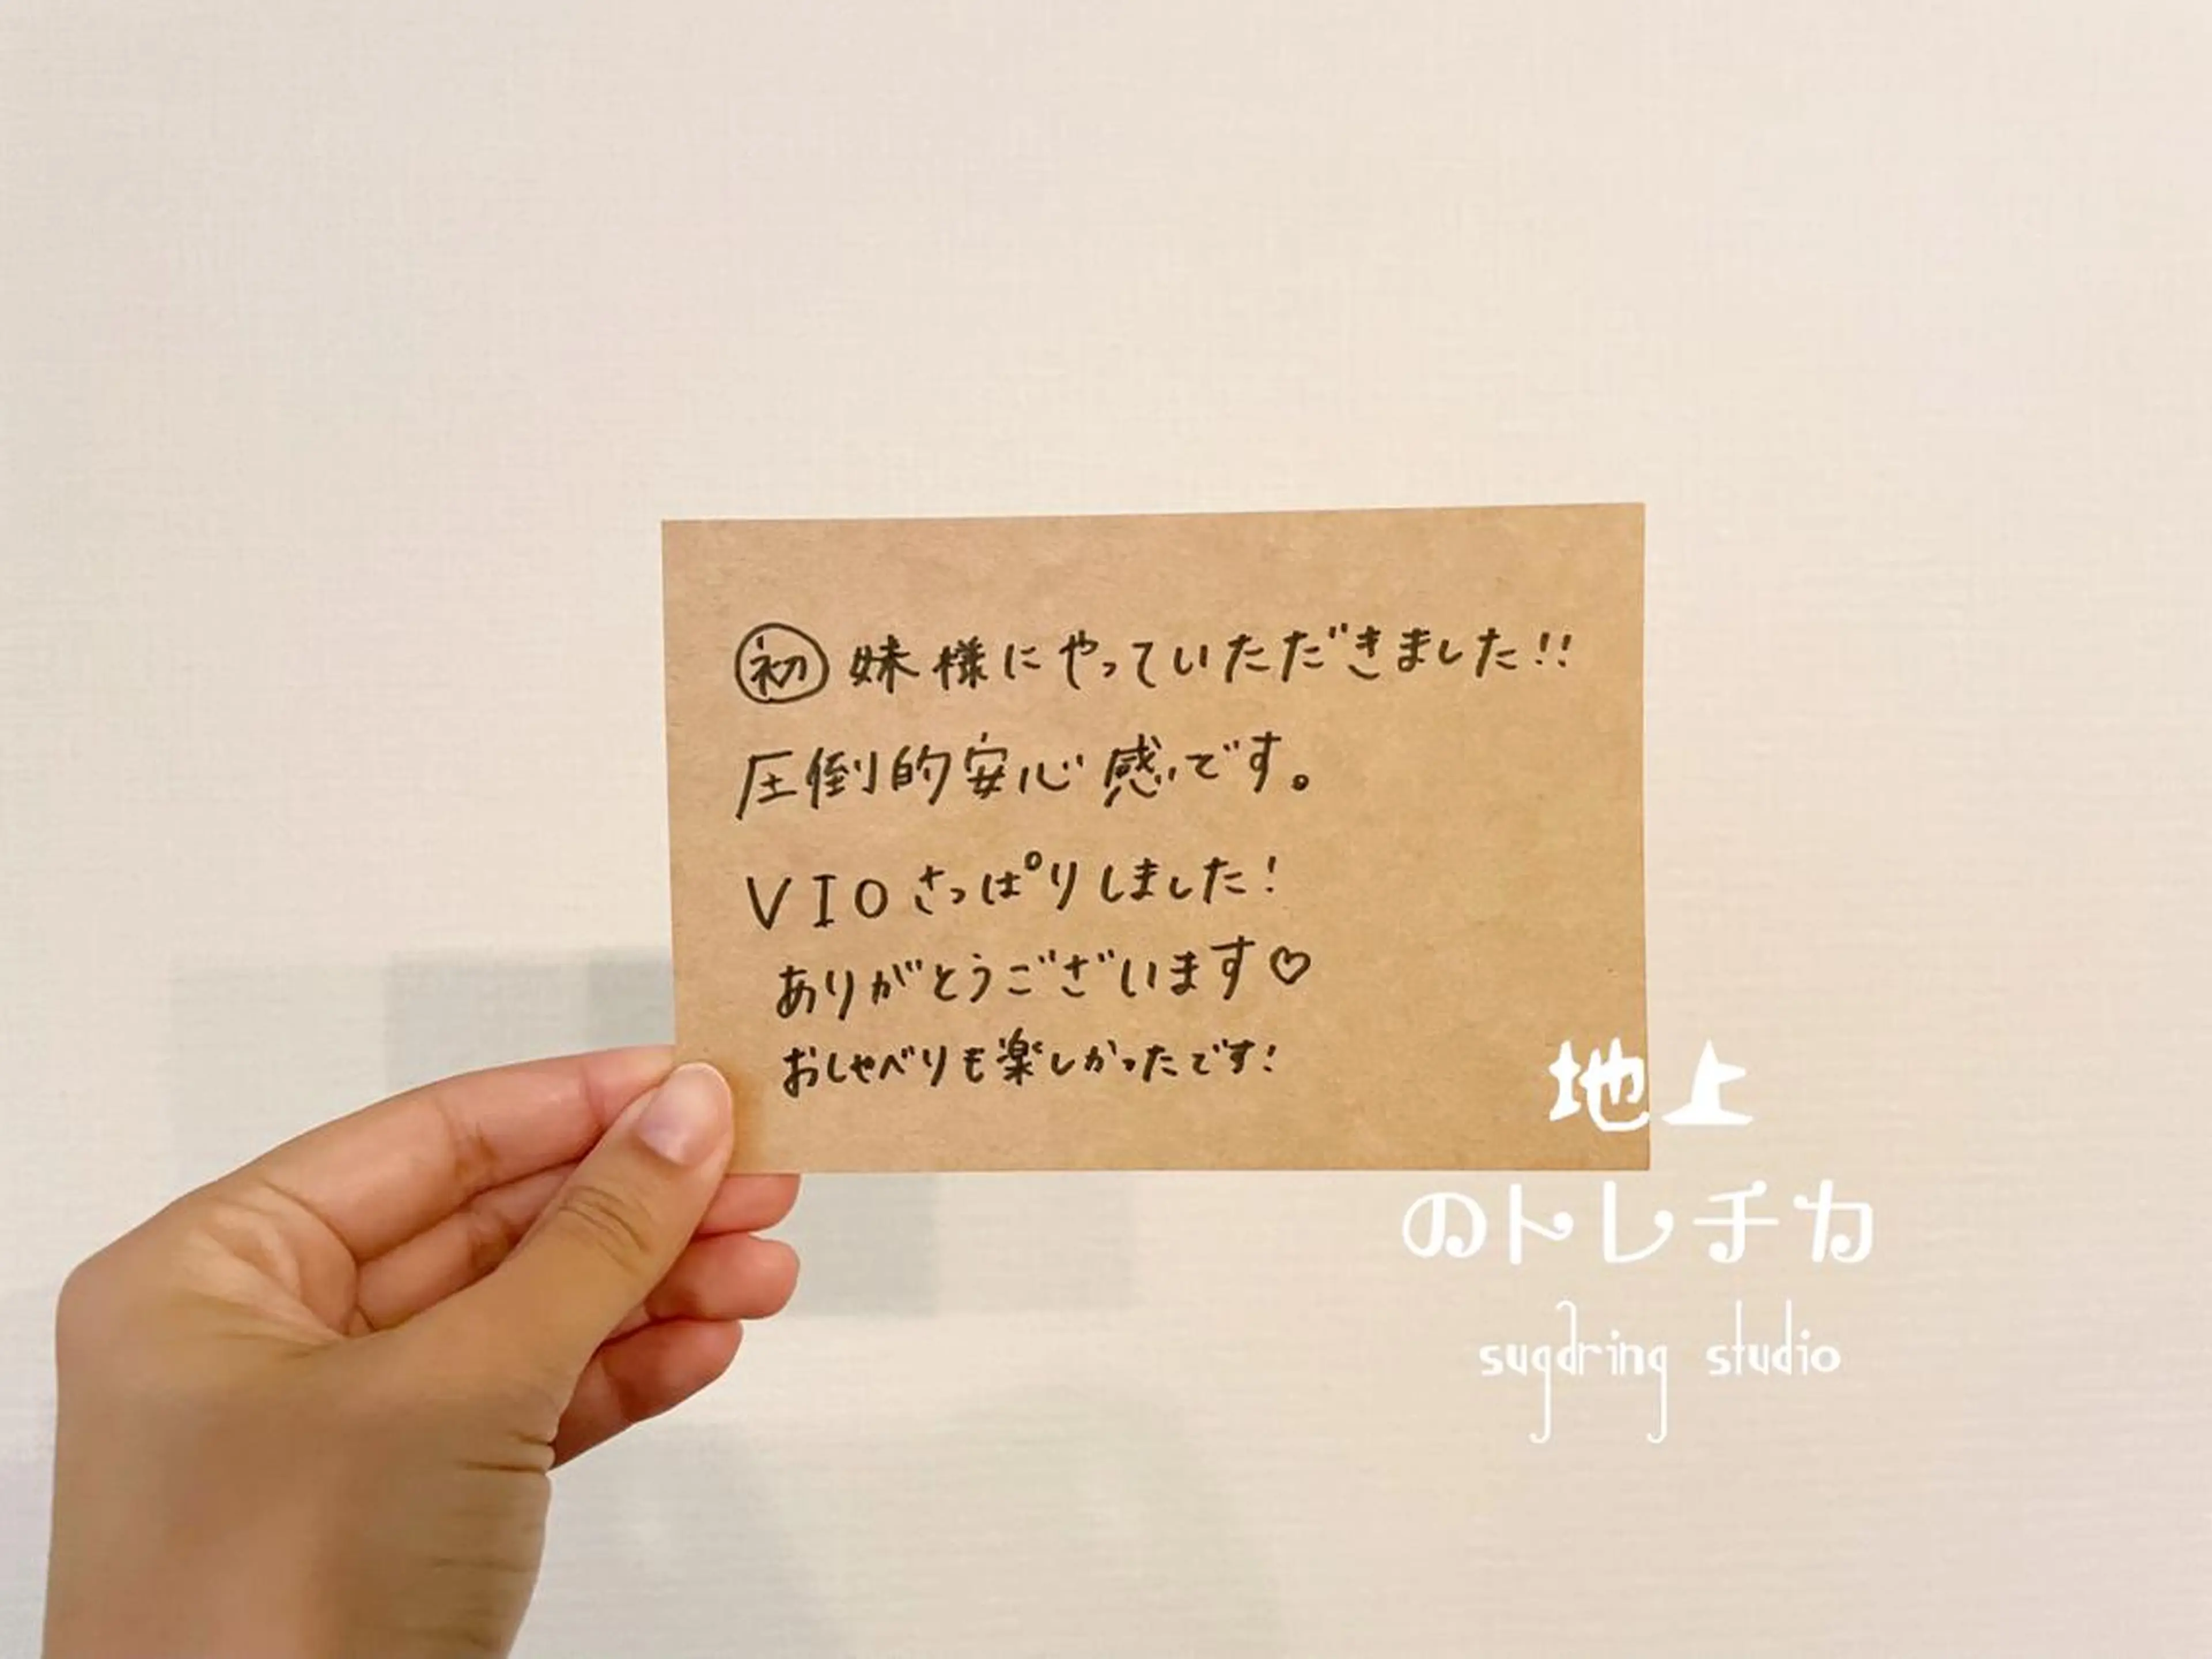 初 妹様にやっていただきました!!
圧倒的安心感です。
VIOさっぱりしました!
ありがとうございます♡
おしゃべりも楽しかったです!
地上
のトレチカ
sugaring studio